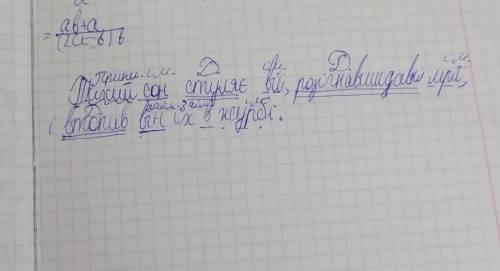 = ab+a / (2a-b)b
прикм. ім. Д. ім. Д. ім.
Тихий сон стуляє вії, розігнавши давні мрії,
займ. займ. ім.
і втопив він їх в журбі.